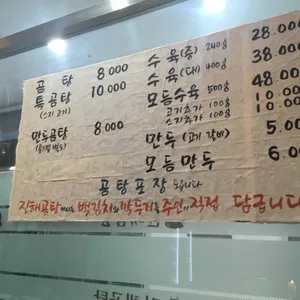 곰탕 8.000
특곰탕 10.000
(스지 고기)
만두곰탕 8.000
수육(중) 240g 28.000
수육(대) 400g 38.000
모듬수육 500g 48.000
고기추가 100g 10.000
스지추가 100g 10.000
만두 (고기, 갈비) 5.000
모듬만두 6.00
곰탕포장 됩니다
진해곰탕 백김치와 깍두기를 주인이 직접 담급니다